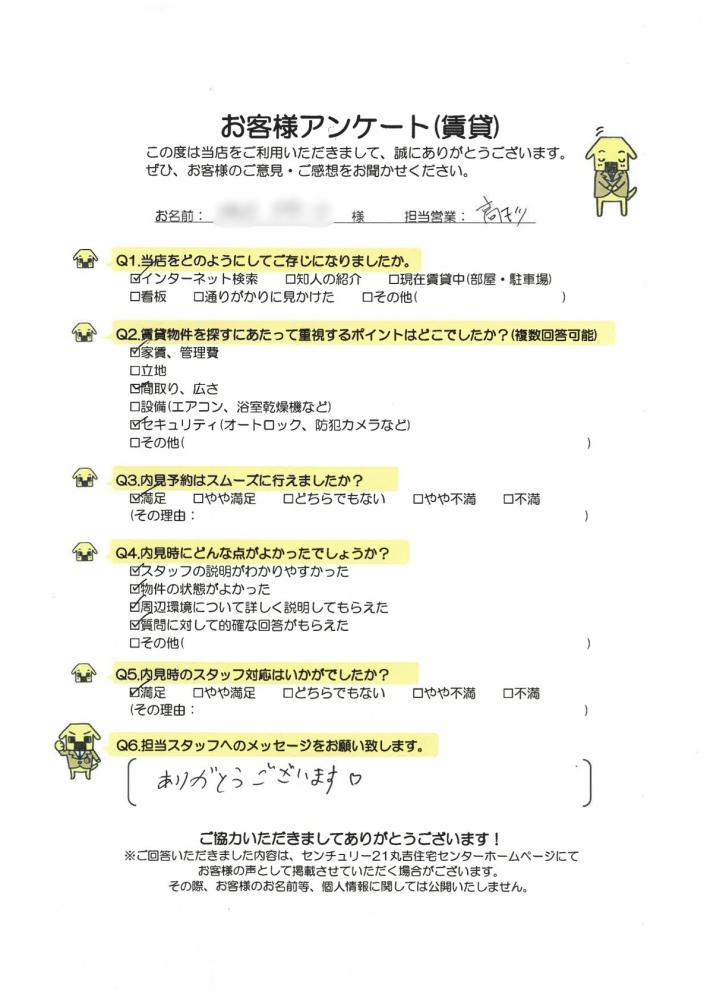 お客様アンケート(賃貸)
この度は当店をご利用いただきまして、誠にありがとうございます。
ぜひ、お客様のご意見・ご感想をお聞かせください。
お名前： 様 担当営業：
Q1.当店をどのようにしてご存じになりましたか。
☑インターネット検索 □知人の紹介 □現在賃貸中(部屋・駐車場)
□看板 □通りがかりに見かけた □その他( )
Q2.賃貸物件を探すにあたって重視するポイントはどこでしたか？(複数回答可能)
☑家賃、管理費
□立地
☑間取り、広さ
□設備(エアコン、浴室乾燥機など)
☑セキュリティ(オートロック、防犯カメラなど)
□その他( )
Q3.内見予約はスムーズに行えましたか？
☑満足 □やや満足 □どちらでもない □やや不満 □不満
(その理由： )
Q4.内見時にどんな点がよかったでしょうか？
☑スタッフの説明がわかりやすかった
☑物件の状態がよかった
☑周辺環境について詳しく説明してもらえた
☑質問に対して的確な回答がもらえた
□その他( )
Q5.内見時のスタッフ対応はいかがでしたか？
☑満足 □やや満足 □どちらでもない □やや不満 □不満
(その理由： )
Q6.担当スタッフへのメッセージをお願い致します。
ありがとうございます♡
ご協力いただきましてありがとうございます！
※ご回答いただきました内容は、センチュリー21丸吉住宅センターホームページにて
お客様の声として掲載させていただく場合がございます。
その際、お客様のお名前等、個人情報に関しては公開いたしません。